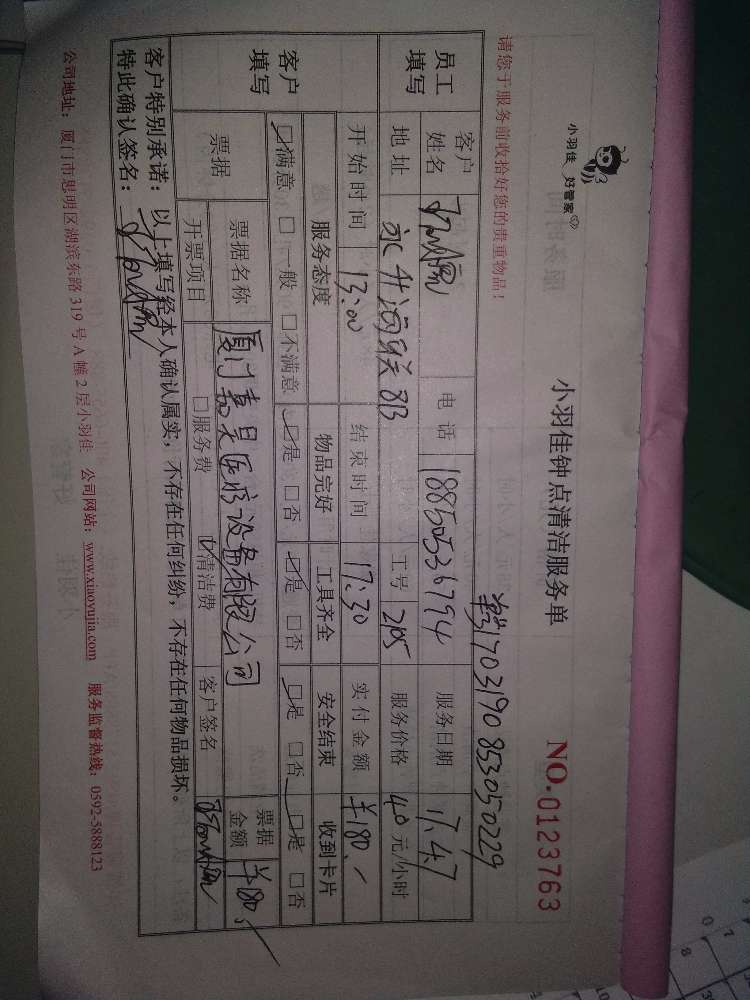 小羽佳 好管家
小羽佳钟点清洁服务单
NO.0123763
请您于服务前收拾好您的贵重物品!
1703190853050229
员工填写
客户姓名
电话 18850536794
服务日期 17.4.7
地址 永升海联8B
工号 2105
服务价格 40 元/小时
开始时间 13:00
结束时间 17:30
实付金额 ¥180.-
客户填写
服务态度 物品完好 工具齐全 安全结束 收到卡片
☑满意 □一般 □不满意 ☑是 □否 ☑是 □否 ☑是 □否 ☑是 □否
票据
票据名称 厦门嘉昊医疗设备有限公司
票据金额 ¥180.-
开票项目 □服务费 ☑清洁费
客户签名
客户特别承诺:以上填写经本人确认属实,不存在任何纠纷,不存在任何物品损坏。
特此确认签名:
公司地址:厦门市思明区湖滨东路319号A幢2层小羽佳 公司网站:www.xiaoyujia.com 服务监督热线:0592-5888123